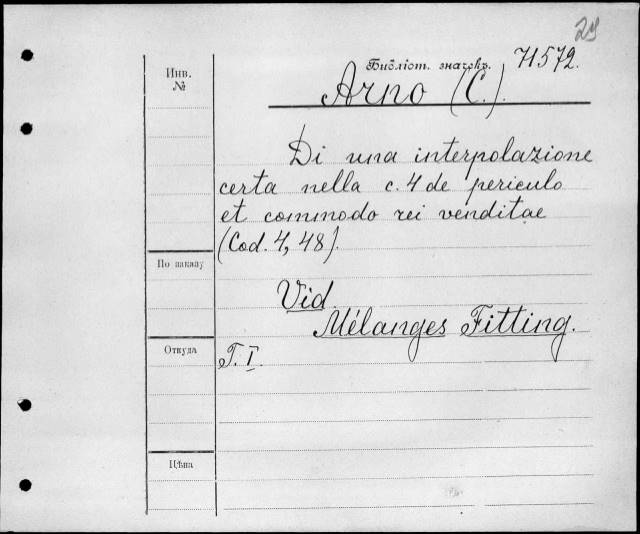 29
Инв.
№
Библіот. значекъ. 71572.
Arno (C.).
Di una interpolazione
certa nella c. 4 de periculo
et commodo rei venditae
(Cod. 4, 48).
По шкапу
Vid.
Mélanges Fitting.
Откуда
T. I.
Цѣна